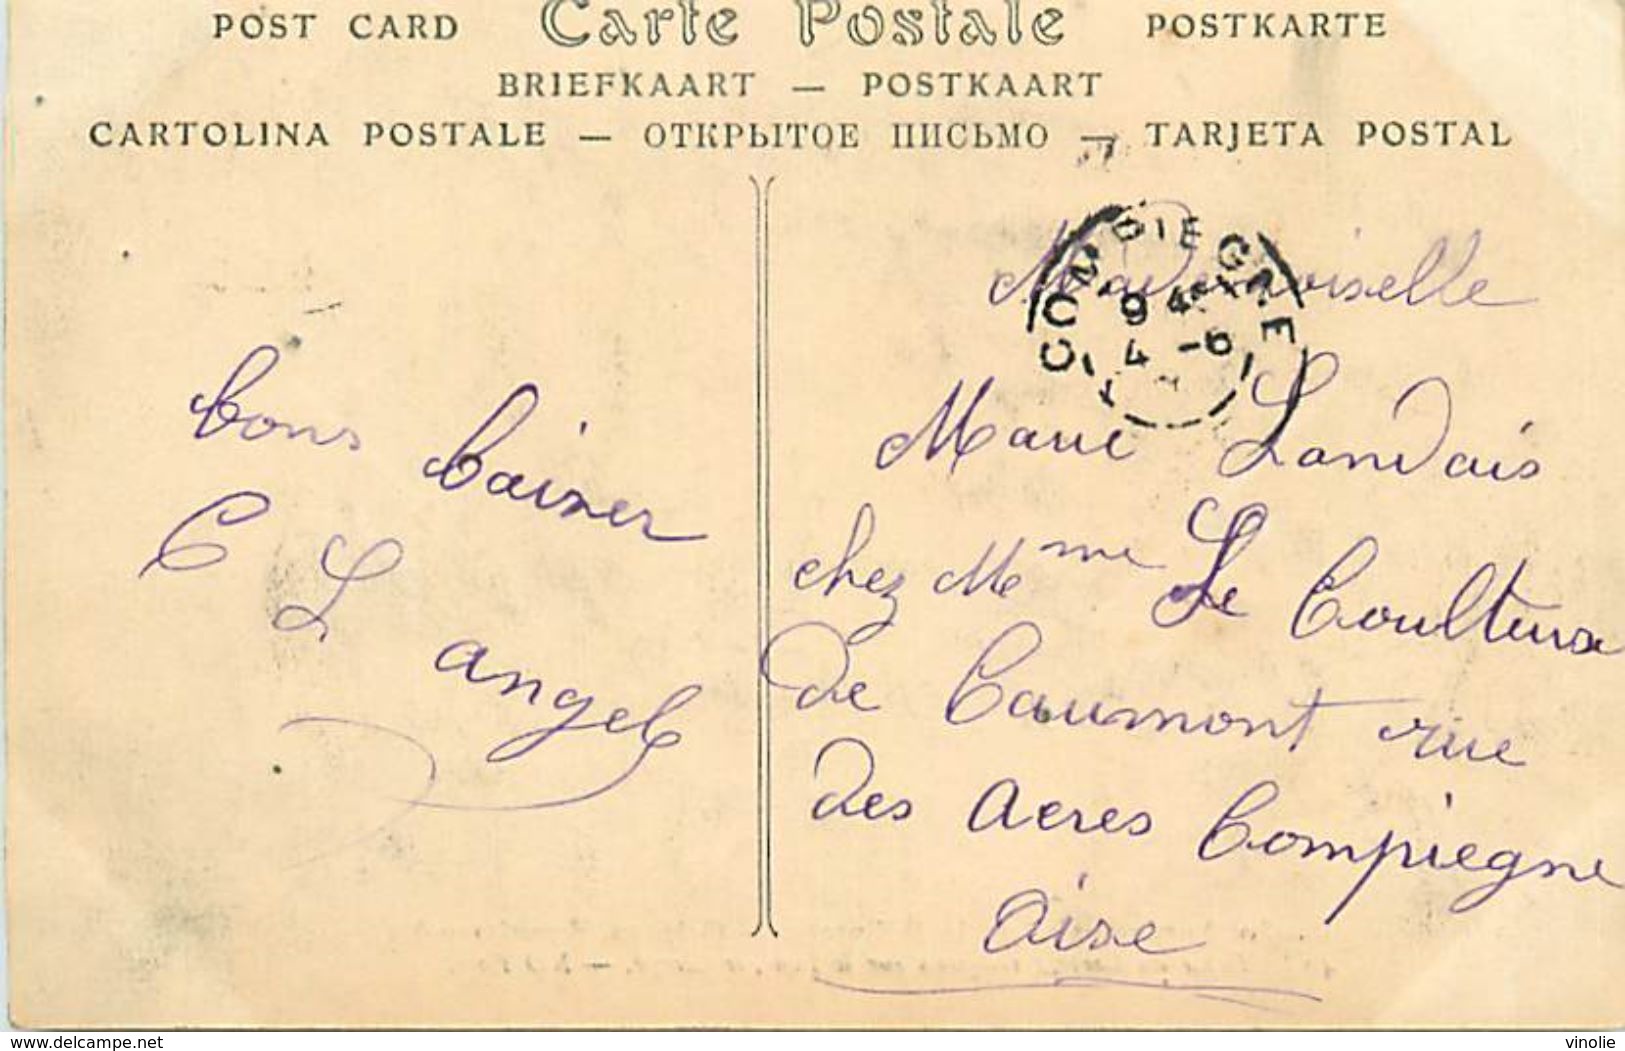 POST CARD Carte Postale POSTKARTE
BRIEFKAART — POSTKAART
CARTOLINA POSTALE — ОТКРЫТОЕ ПИСЬМО — TARJETA POSTAL
COMPIEGNE
9
4 -6
bons baiser
C L angel
Mademoiselle
Marie Landais
chez Mme Le Coulteux
de Caumont rue
des Acres Compiegne
Oise
https://www.delcampe.net
vinolie